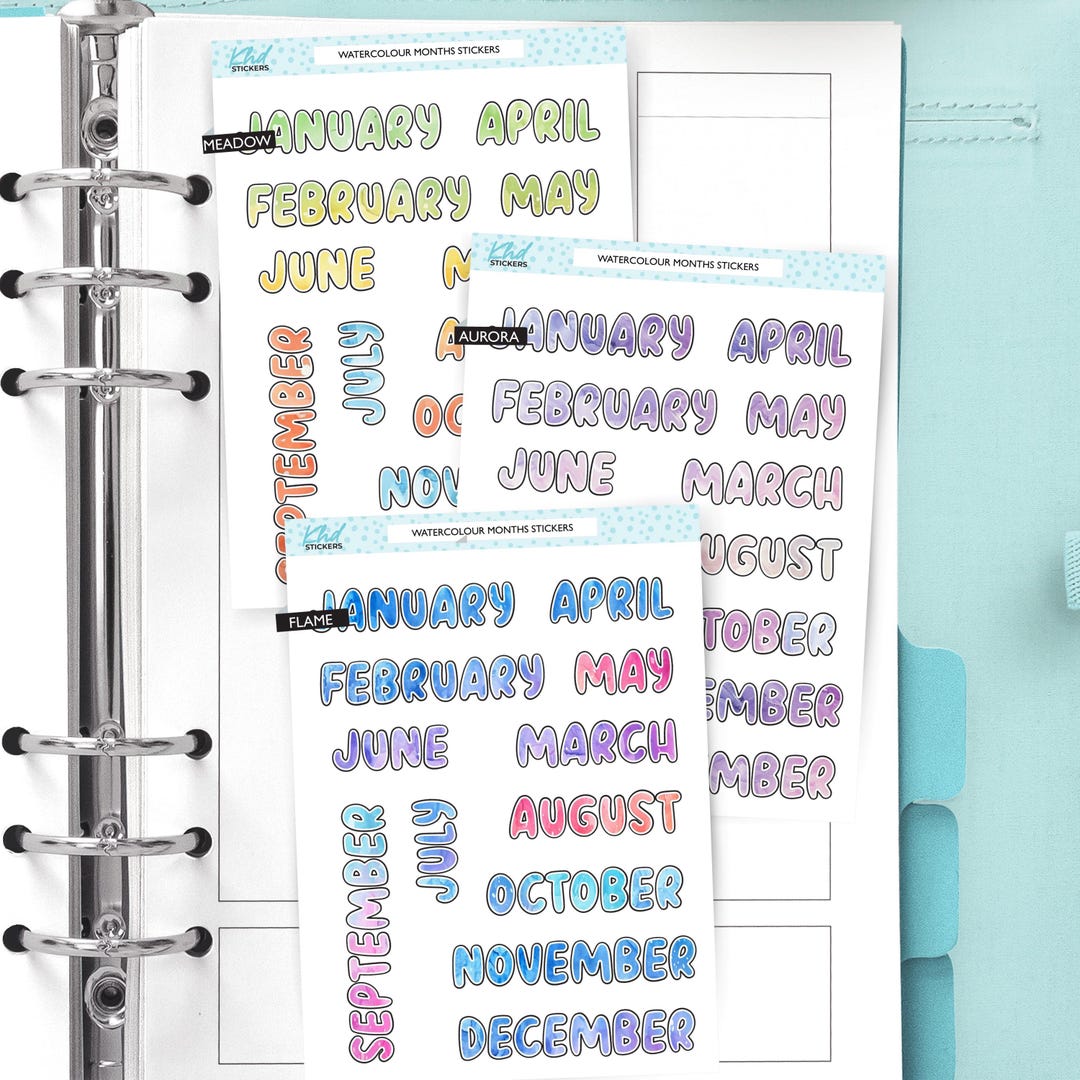 Khd
STICKERS
WATERCOLOUR MONTHS STICKERS
MEADOW
JANUARY APRIL
FEBRUARY MAY
JUNE M
SEPTEMBER
JULY
A
OC
NOV
Khd
STICKERS
WATERCOLOUR MONTHS STICKERS
AURORA
JANUARY APRIL
FEBRUARY MAY
JUNE MARCH
UGUST
TOBER
EMBER
MBER
Khd
STICKERS
WATERCOLOUR MONTHS STICKERS
FLAME
JANUARY APRIL
FEBRUARY MAY
JUNE MARCH
SEPTEMBER
JULY
AUGUST
OCTOBER
NOVEMBER
DECEMBER